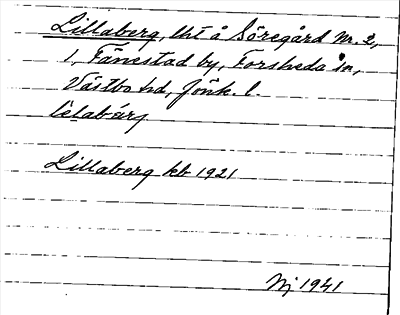 Lillaberg, lht å Söregård nr. 2,
1, Fånestad by, Forsheda sn,
Västbo hd, Jönk. l.
lèlabárj

Lillaberg kb 1921

Nj 1941